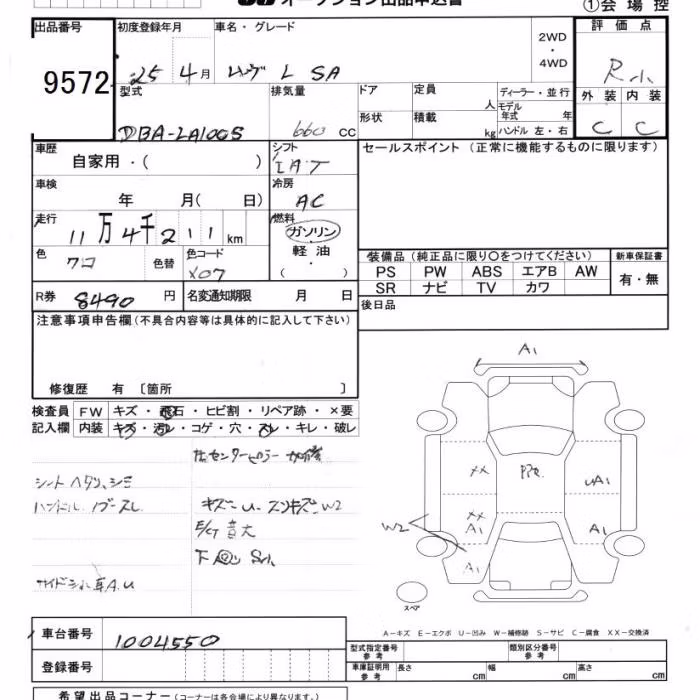 オークション出品申込書
①会場控
出品番号 初度登録年月 車名・グレード 評価点
9572 25 4月 ムーヴ L SA 2WD・4WD R小
型式 排気量 ドア 定員 人 ディーラー・並行 外装 内装
DBA-LA100S 660 CC 形状 積載 kg モデル年式 年 ハンドル 左・右 C C
車歴 自家用・( ) シフト IAT セールスポイント (正常に機能するものに限ります)
車検 年 月( 日) 冷房 AC
走行 11万4千211km 燃料 ガソリン・軽油・( )
色 クロ 色替 色コード X07 装備品 (純正品に限り○をつけてください) 新車保証書
PS PW ABS エアB AW 有・無
SR ナビ TV カワ
R券 8490円 名変通知期限 月 日 後日品
注意事項申告欄(不具合内容等は具体的に記入して下さい)
修復歴 有 〔箇所 〕
検査員 FW キズ・飛石・ヒビ割・リペア跡・×要
記入欄 内装 キズ・汚レ・コゲ・穴・スレ・キレ・破レ
シートヘタリ、シミ
ハンドル
キズ U W2
E/G 音大
下
A1
XX
UA1
XX
A1
A1
W2
A1
スペア
A-キズ E-エクボ U-凹み W-補修跡 S-サビ C-腐食 XX-交換済
車台番号 1004550
登録番号
型式指定番号 参考 類別区分番号 参考
車庫証明用 参考 長さ cm 幅 cm 高さ cm
希望出品コーナー(コーナーは各会場により異なります。)